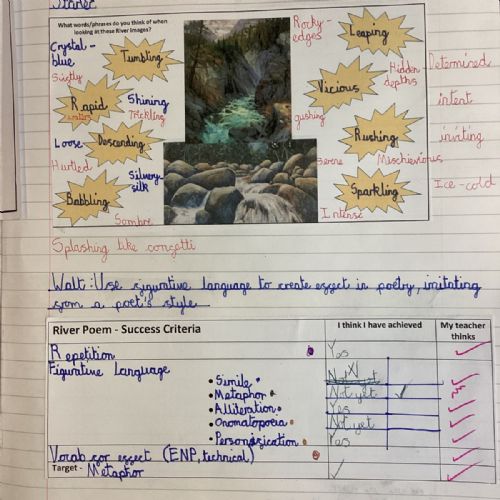 What words/phrases do you think of when
looking at these River Images?
Crystal-
blue
Tumbling
Rocky-
edges
Leaping
Swiftly
Hidden
depths
Determined
Vicious
Rapid
waters
Shining
Trickling
gushing
intent
Loose
Descending
Rushing
inviting
Hurtled
Serene
Mischievious
Silvery-
silk
Babbling
Sparkling
Ice-cold
Sombre
Intense
Splashing like confetti
Walt: Use figurative language to create effect in poetry, imitating
from a poet's style
River Poem - Success Criteria
I think I have achieved
My teacher
thinks
Repetition
Yes
Figurative Language
• Simile
Not yet
• Metaphor
Not yet
• Alliteration
Yes
• Onomatopoeia
Not yet
• Personification
Yes
Vocab for effect (ENP, technical)
Target - Metaphor